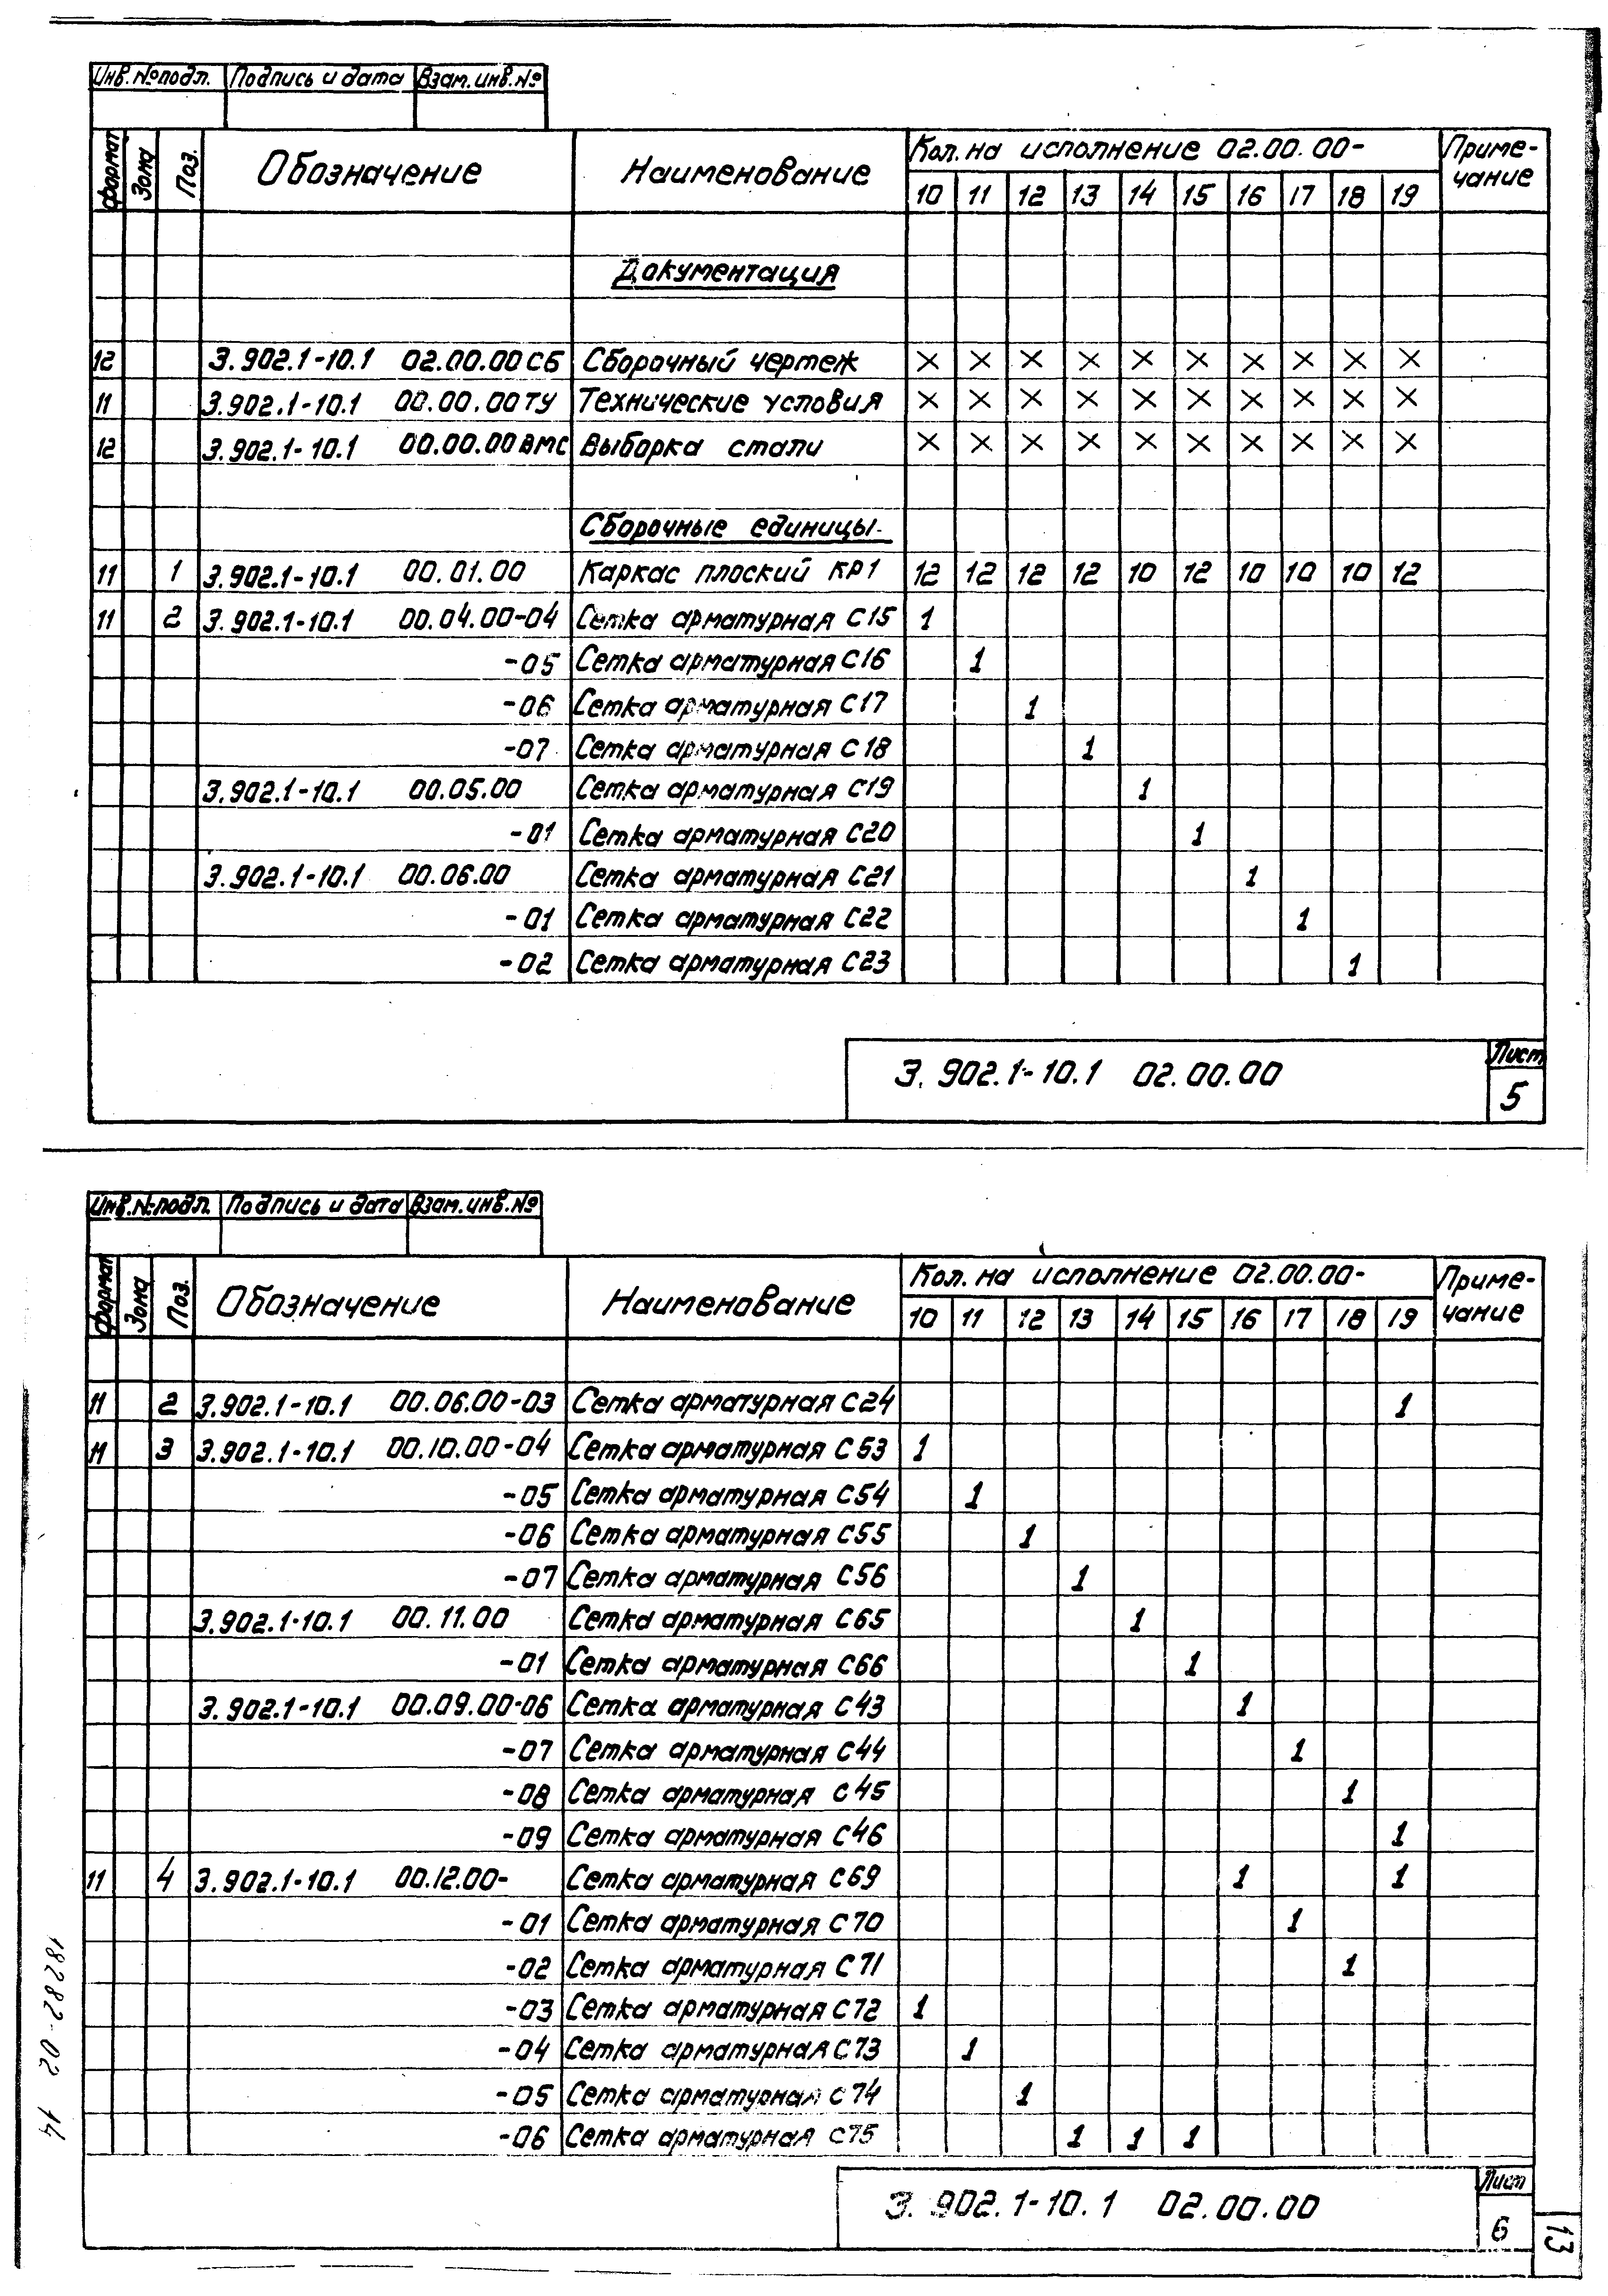 Инв.№подл. Подпись и дата Взам.инв.№
формат Зона Поз. Обозначение Наименование Кол. на исполнение 02.00.00- Приме-
чание
10 11 12 13 14 15 16 17 18 19
Документация
12 3.902.1-10.1 02.00.00СБ Сборочный чертеж × × × × × × × × × ×
11 3.902.1-10.1 00.00.00ТУ Технические условия × × × × × × × × × ×
12 3.902.1-10.1 00.00.00ВМС Выборка стали × × × × × × × × × ×
Сборочные единицы
11 1 3.902.1-10.1 00.01.00 Каркас плоский КР1 12 12 12 12 10 12 10 10 10 12
11 2 3.902.1-10.1 00.04.00-04 Сетка арматурная С15 1
-05 Сетка арматурная С16 1
-06 Сетка арматурная С17 1
-07 Сетка арматурная С18 1
3.902.1-10.1 00.05.00 Сетка арматурная С19 1
-01 Сетка арматурная С20 1
3.902.1-10.1 00.06.00 Сетка арматурная С21 1
-01 Сетка арматурная С22 1
-02 Сетка арматурная С23 1
3.902.1-10.1 02.00.00
Лист
5
Инв.№подл. Подпись и дата Взам.инв.№
формат Зона Поз. Обозначение Наименование Кол. на исполнение 02.00.00- Приме-
чание
10 11 12 13 14 15 16 17 18 19
11 2 3.902.1-10.1 00.06.00-03 Сетка арматурная С24 1
11 3 3.902.1-10.1 00.10.00-04 Сетка арматурная С53 1
-05 Сетка арматурная С54 1
-06 Сетка арматурная С55 1
-07 Сетка арматурная С56 1
3.902.1-10.1 00.11.00 Сетка арматурная С65 1
-01 Сетка арматурная С66 1
3.902.1-10.1 00.09.00-06 Сетка арматурная С43 1
-07 Сетка арматурная С44 1
-08 Сетка арматурная С45 1
-09 Сетка арматурная С46 1
11 4 3.902.1-10.1 00.12.00- Сетка арматурная С69 1 1
-01 Сетка арматурная С70 1
-02 Сетка арматурная С71 1
-03 Сетка арматурная С72 1
-04 Сетка арматурная С73 1
-05 Сетка арматурная С74 1
-06 Сетка арматурная С75 1 1 1
3.902.1-10.1 02.00.00
Лист
6
13
18282-02 14